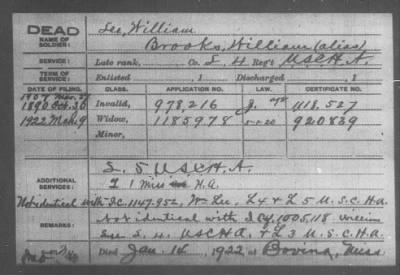 DEAD
NAME OF SOLDIER:
Lee, William
Brooks, William (alias)
SERVICE: Late rank, Co. L, 4 Reg't U.S.C.H.A.
TERM OF SERVICE: Enlisted , 1 Discharged , 1
DATE OF FILING. CLASS. APPLICATION NO. LAW. CERTIFICATE NO.
1907
1890 Oct. 30 Invalid, 978,216 J. 418,527
1922 Mch. 9 Widow, 1185978 920839
Minor,
ADDITIONAL SERVICES:
L. 5 U.S.C.H.A.
L 1 Miss H.A.
REMARKS:
Not identical with I.C. 1147.952, Wm Lee, L 4 & L 5 U.S.C.H.A.
Not identical with I.C. 1,005,118 William
Lee L. 4. U.S.C.H.A. & L 3 U.S.C.H.A.
Died Jan. 14, 1922, at Bovina, Miss